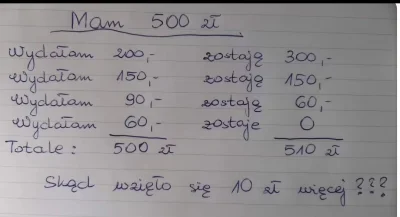 Mam 500 zł
Wydałam 200,- zostają 300,-
Wydałam 150,- zostają 150,-
Wydałam 90,- zostają 60,-
Wydałam 60,- zostaje 0
Totale: 500 zł 510 zł
Skąd wzięło się 10 zł więcej???